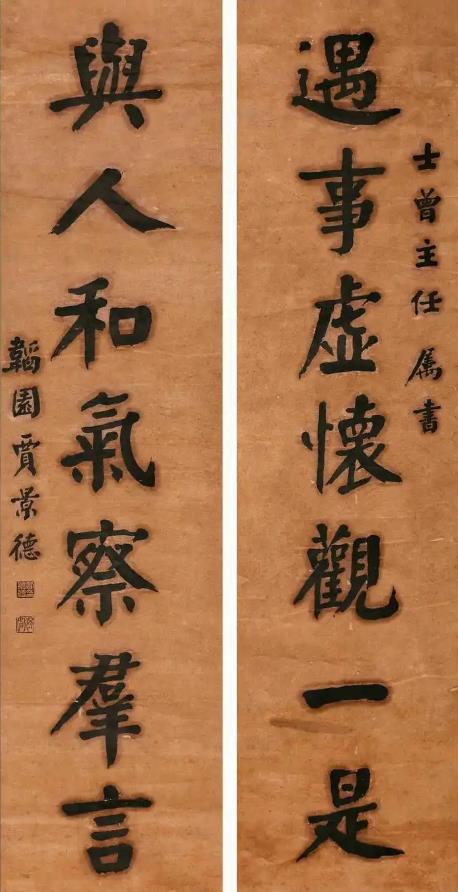 士曾主任属書
遇事虚懷觀一是
與人和氣察羣言
韜園賈景德